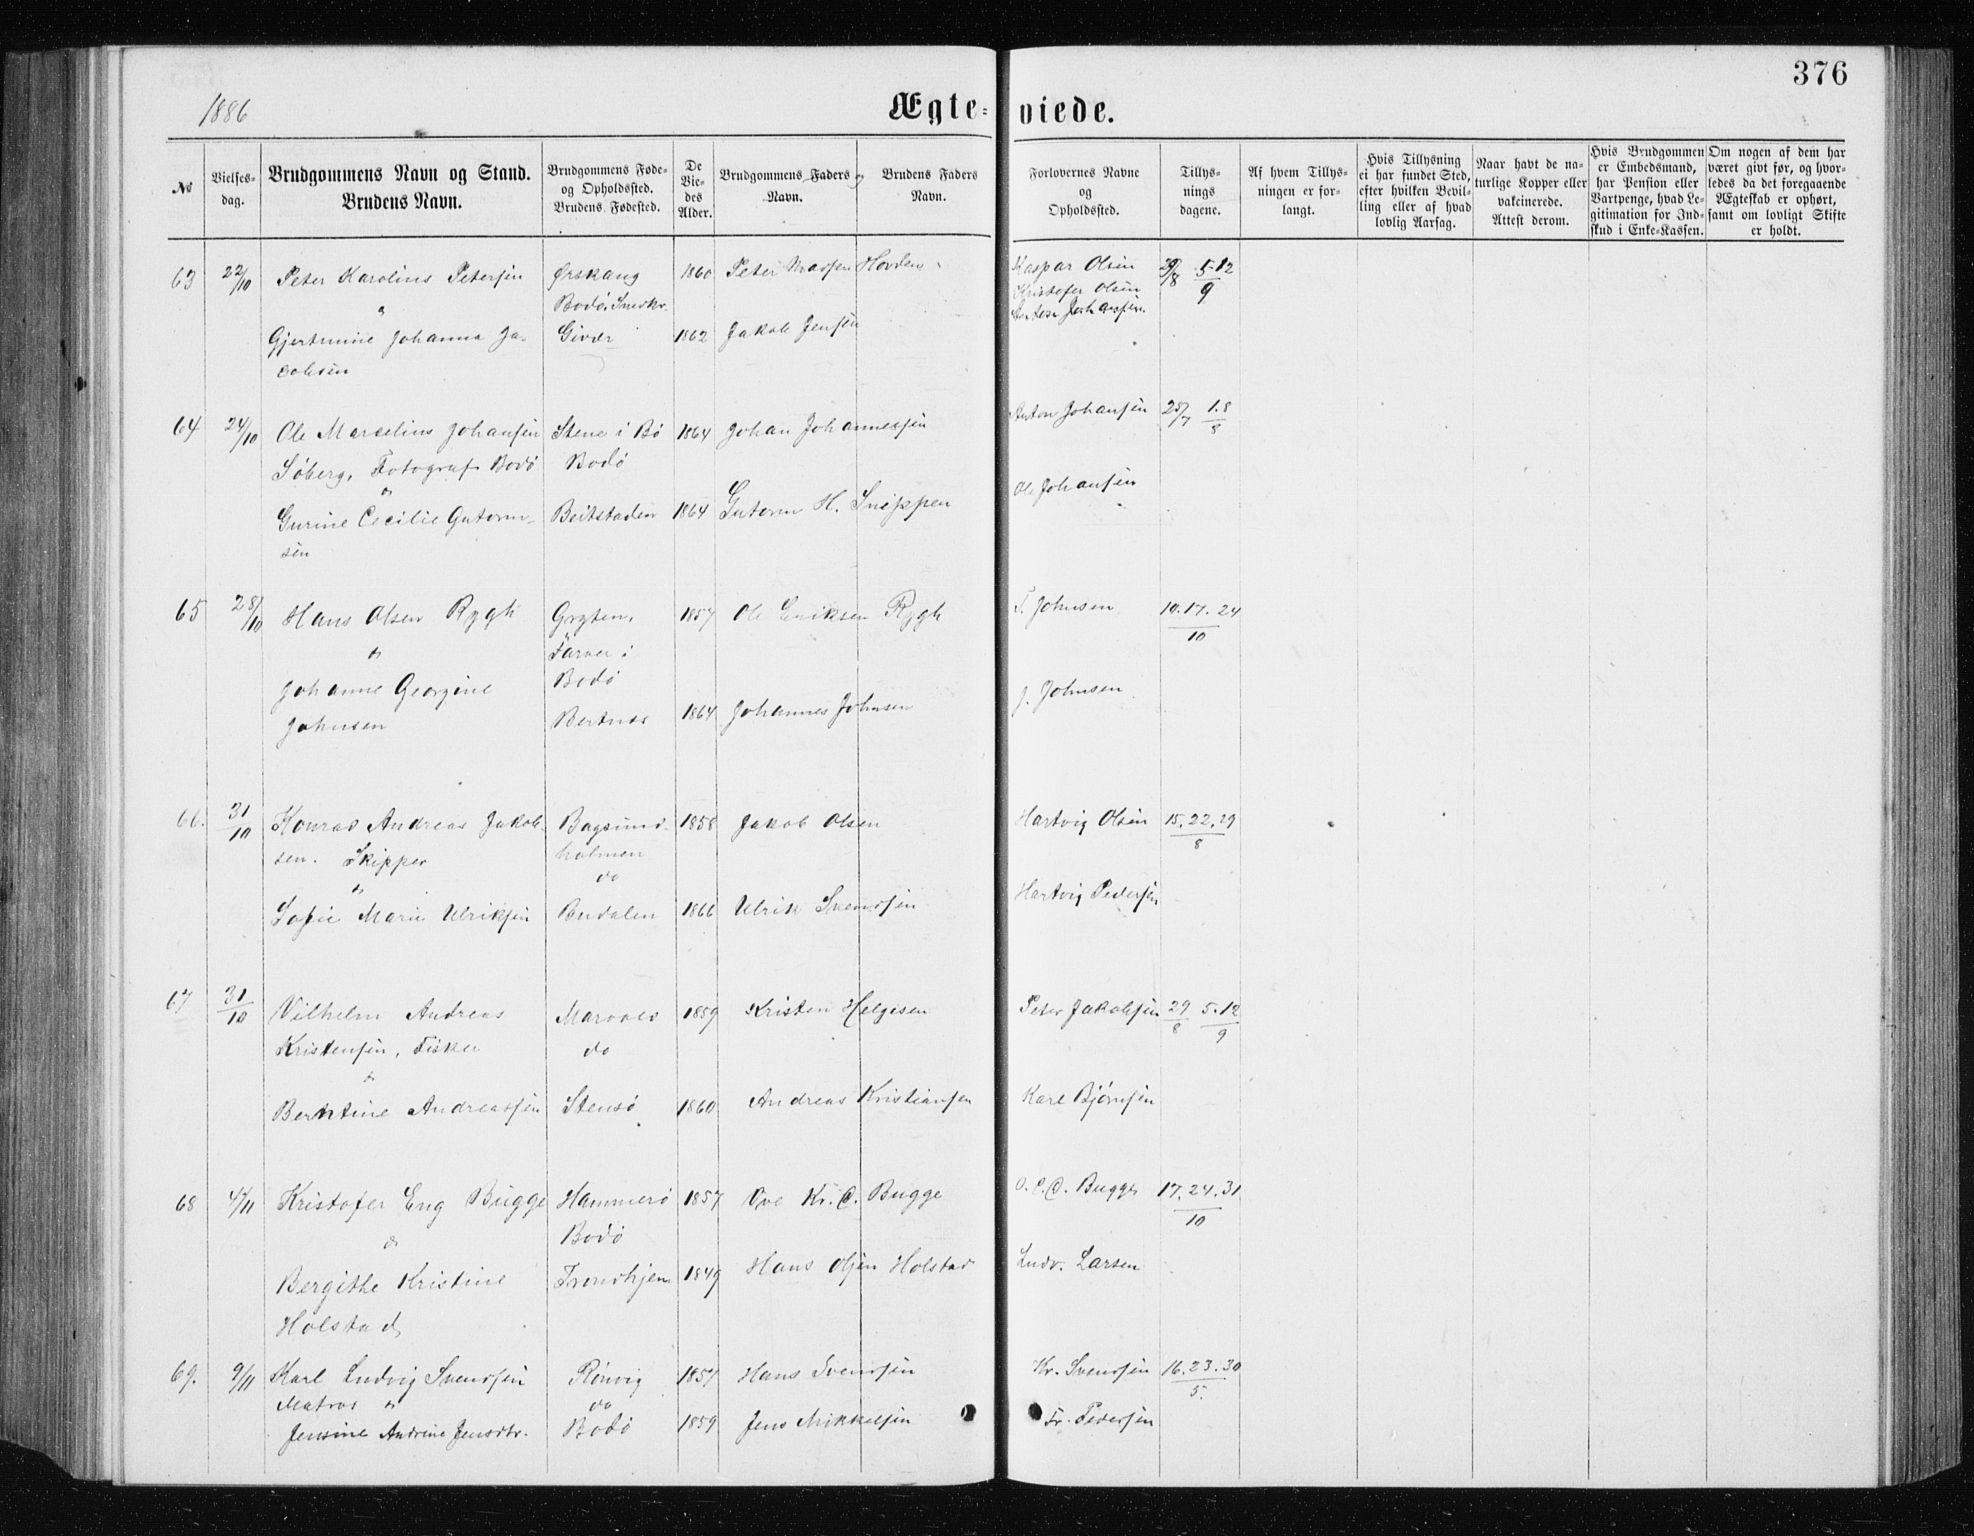 376
1886
Ægte-viede.
No
Vielses-dag.
Brudgommens Navn og Stand. Brudens Navn.
Brudgommens Føde- og Opholdssted. Brudens Fødested.
De Vie-des Alder.
Brudgommens Faders og Brudens Faders
Navn. Navn.
Forlovernes Navne og Opholdssted.
Tillys-nings dagene.
Af hvem Tillys-ningen er for-langt.
Hvis Tillysning ei har fundet Sted, efter hvilken Bevil-ling eller af hvad lovlig Aarsag.
Naar havt de na-turlige Kopper eller vakcinerede. Attest derom.
Hvis Brudgommen er Embedsmand, har Pension eller Vartpenge, hvad Le-gitimation for Ind-skud i Enke-Kassen.
Om nogen af dem har været givt før, og hvor-ledes da det foregaaende Ægteskab er ophørt, samt om lovligt Skifte er holdt.
63 22/10 Peter Karolius Petersen Ørskaug 1860 Peter Hovden Kaspar Olsen 29/8 5.12/9
Bodø Kristofer Olsen
Gjertmine Johanna Ja- Givær 1862 Jakob Jensen
cobsen
64 24/10 Ole Marcelius Johansen Stene i Bø 1864 Johan Johannessen Anton Johansen 25/7 1.8/8
Søberg, Fotograf Bodø Bodø
Gurine Cecilie Gutorm- Beitstaden 1864 Gutorm H. Snippen Ole Johansen
sen
65 28/10 Hans Olsen Rygh Gryten, 1857 Ole Eriksen Rygh T. Johnsen 10.17.24/10
Farver i
Bodø
Johanne Georgine
Johnsen Bertnes 1864 Johannes Johnsen J. Johnsen
66. 31/10 Konrad Andreas Jakob- Bagsund- 1858 Jakob Olsen Hartvig Olsen 15.22.29/8
sen. Skipper holmen
do
Sofie Marie Ulriksen 1866 Ulrik Svendsen Hartvig Pedersen
67 31/10 Vilhelm Andreas 1859 Kristen Helgesen Peter Jakobsen 29/8 5.12/9
Kristensen, Fisker do
Berntine Andreassen Stensø 1860 Andreas Kristiansen Karl Bjørnsen
68 4/11 Kristofer Eng Bugge Hammerø 1857 Ove Kr. C. Bugge O. C. C. Bugge 17.24.31/10
Bodø
Bergithe Kristine Trondhjem 1849 Hans Olsen Holstad Ludv. Larsen
Holstad
69. 9/11 Karl Ludvig Svendsen Rønvig 1857 Hans Svendsen Kr. Svendsen 16.23.30/5.
Matros do
Jensine Andrine Jensdtr. Bodø 1859 Jens Mikkelsen Fr. Pedersen